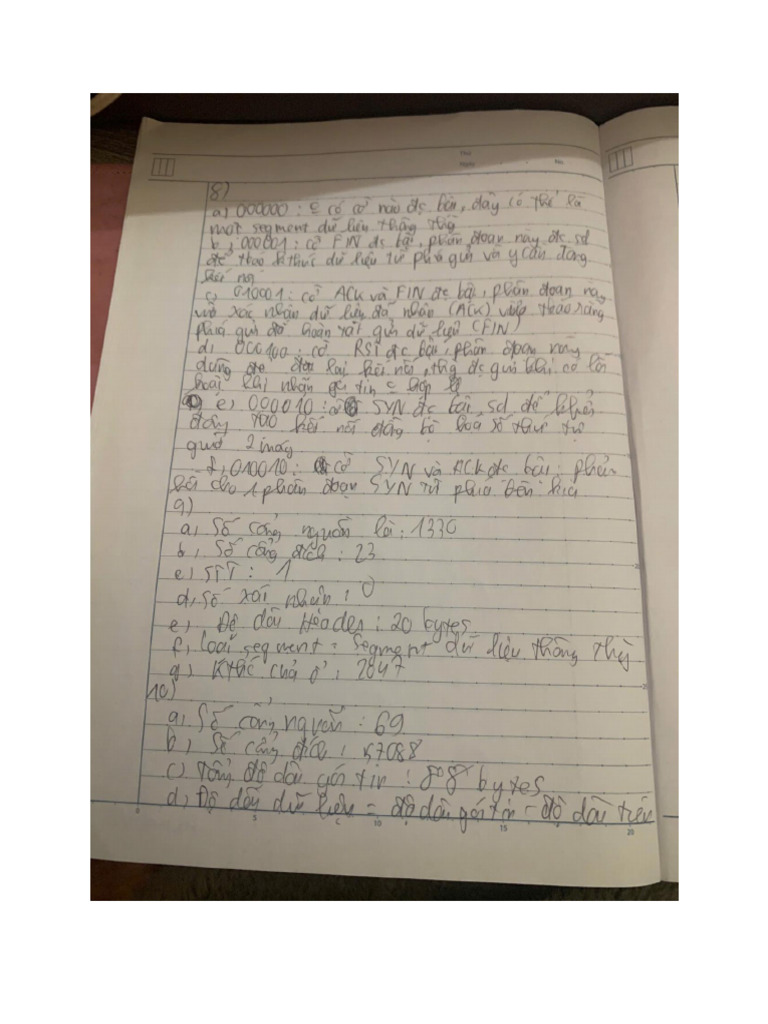 Thứ
Ngày No.
8)
a) 000000 : có cờ nào đc bật, đây có thể là
một segment dữ liệu thông thg
b, 000001 : cờ FIN đc bật, phân đoạn này đc sd
để thao kthúc dữ liệu từ phía gửi và y cần đóng
kết nối
c, 010001 : cờ ACK và FIN đc bật, phân đoạn này
xác nhận dữ liệu đã nhận (ACK) và rằng
phía gửi đã hoàn tất gửi dữ liệu (FIN)
d, 000100 : cờ RST đc bật, phân đoạn này
dùng để đặt lại kết nối, thg đc gửi khi có lỗi
hoặc khi nhận gói tin hợp lệ
e, 000010 : cờ SYN đc bật, sd để khởi
động tạo kết nối đồng bộ hóa số thứ tự
giữa 2 máy
f, 010010 : cờ SYN và ACK đc bật : phản
hồi cho 1 phân đoạn SYN từ phía bên kia
9)
a, Số cổng nguồn là : 1330
b, Số cổng đích : 23
c, STT : 1
d, Số xác nhận : 0
e, Độ dài Header : 20 bytes
f, Loại segment = Segment dữ liệu thông thg
g, Kthc cửa sổ : 2047
10)
a, Số cổng nguồn : 69
b, Số cổng đích : 57088
c, Tổng độ dài gói tin : 808 bytes
d, Độ dài dữ liệu = độ dài gói tin - độ dài tiêu
0 5 10 15 20